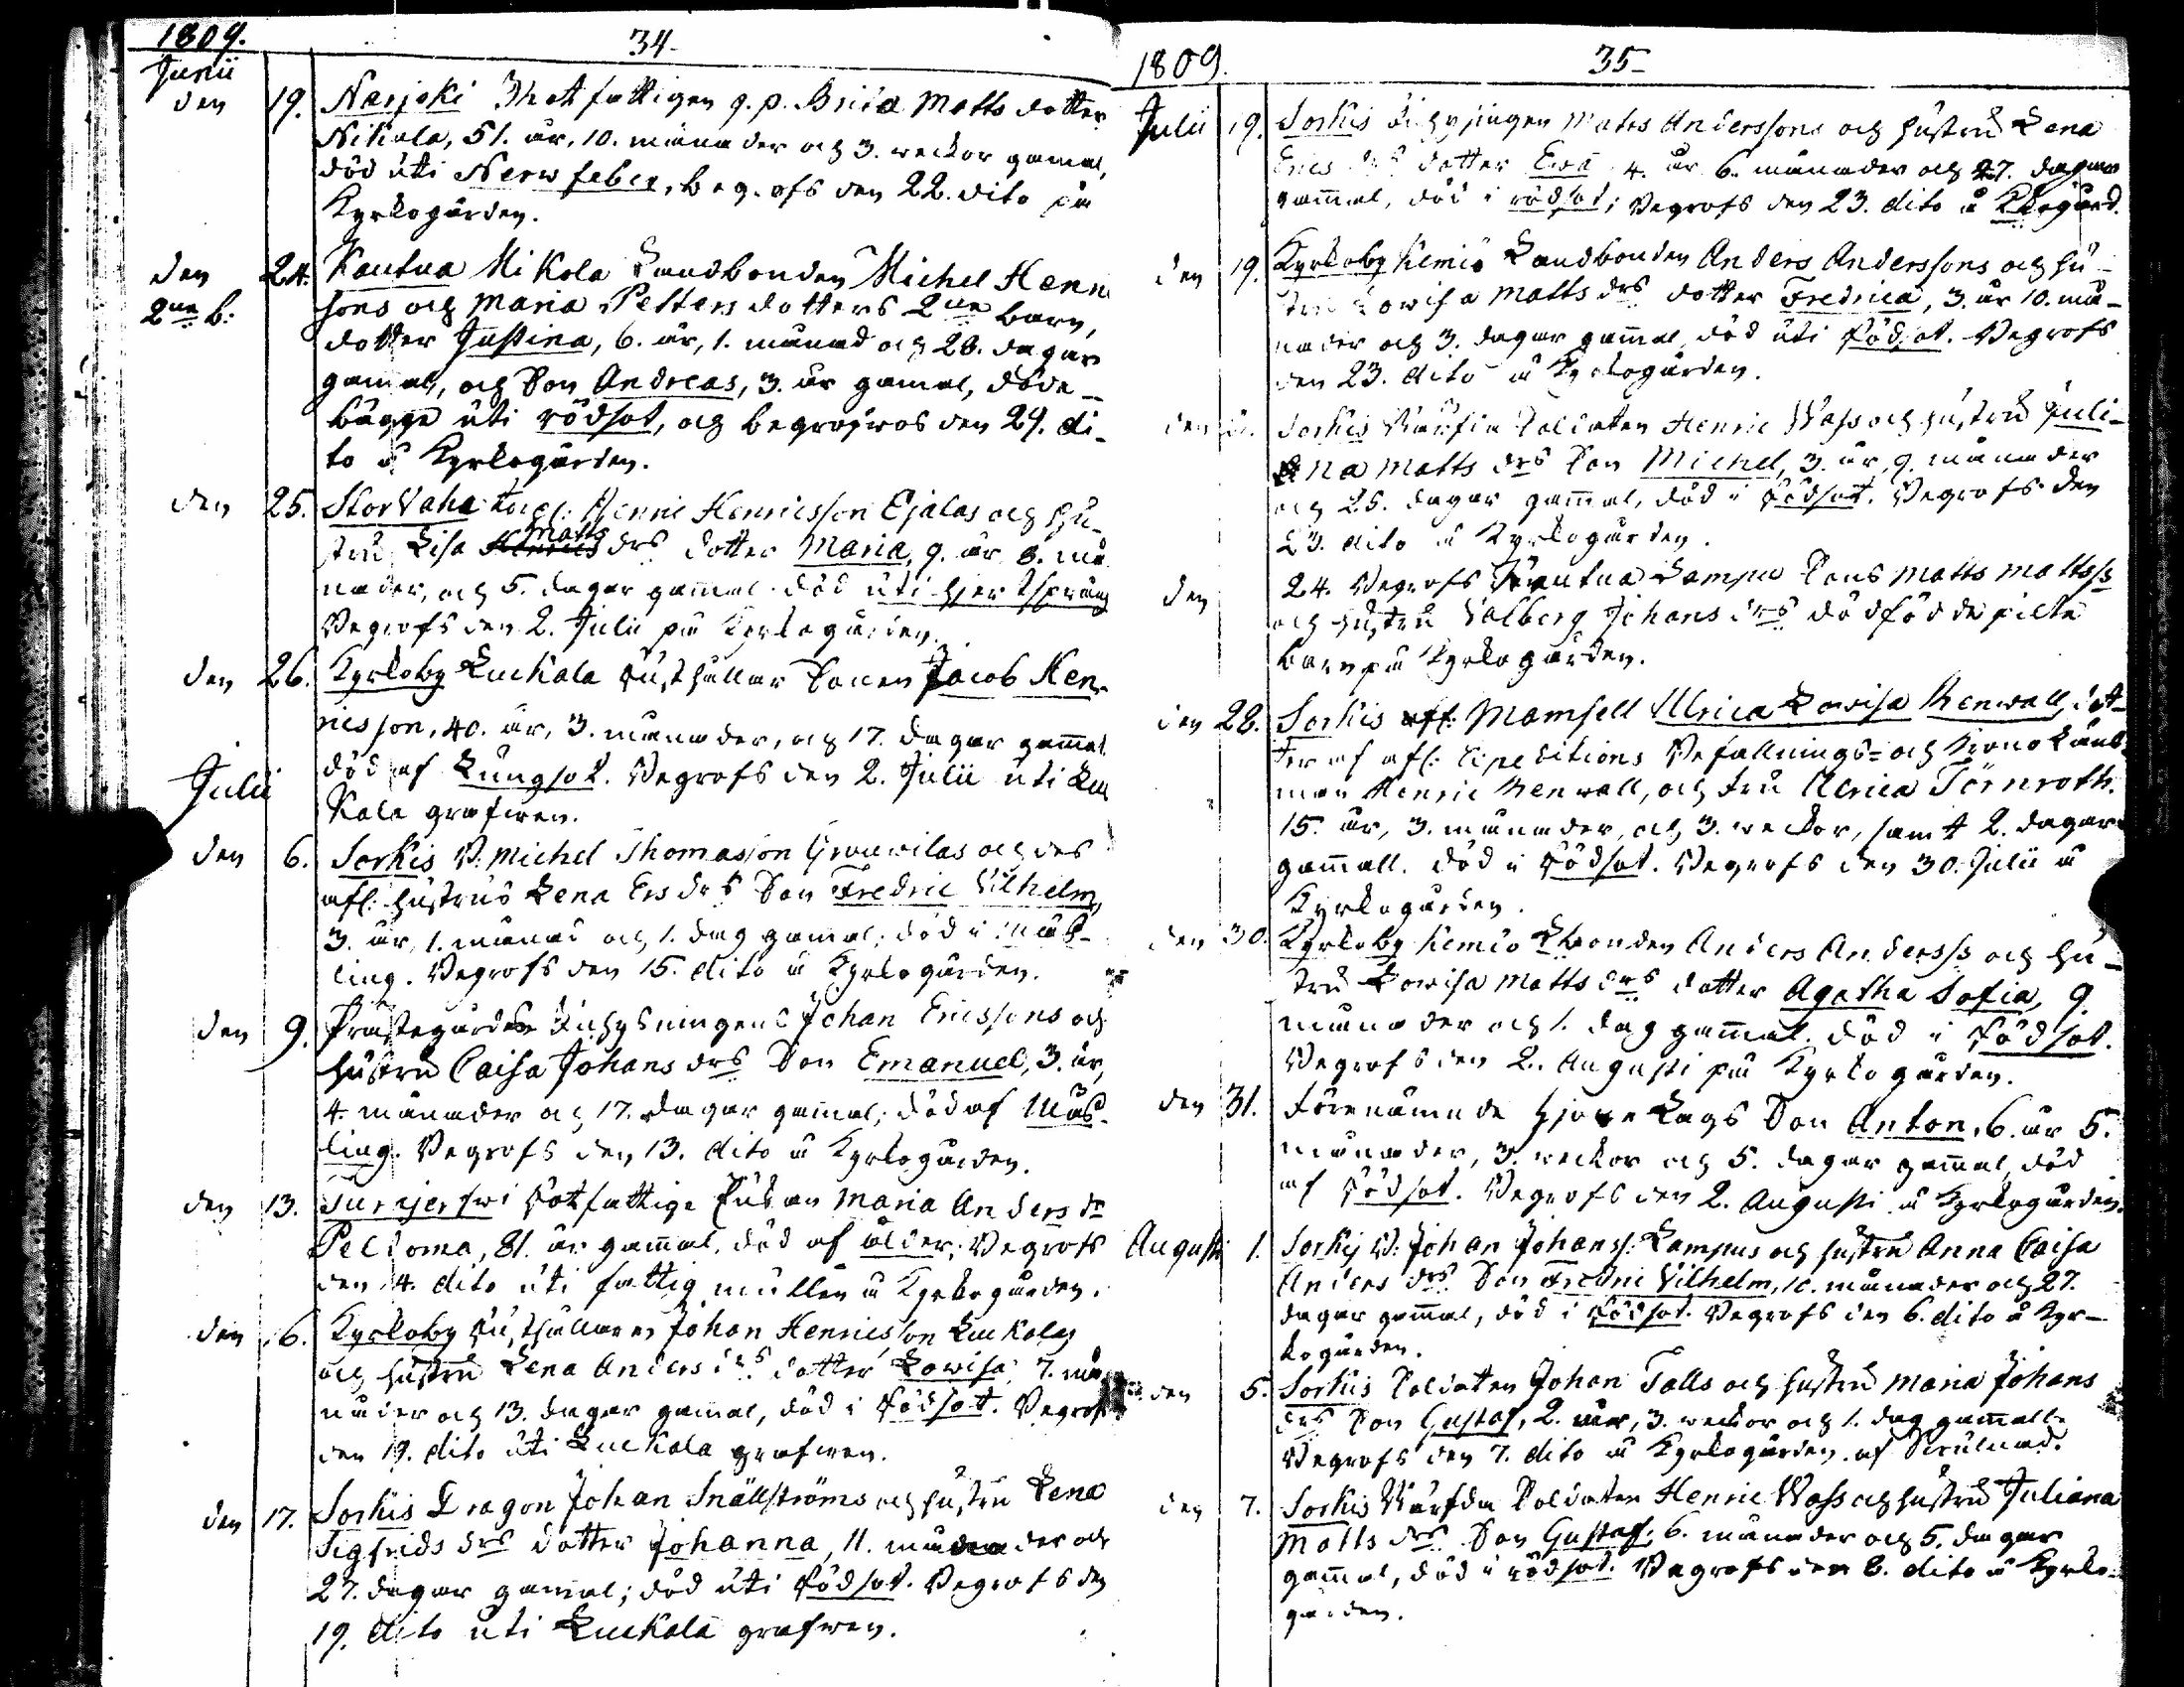 1809.
34.
Junii
den 19. Narjoki Rotfattigen g. p. Brita Matts dotter
Nikala, 51. år, 10. månader och 3. weckor gamal,
död uti Nerwfeber, begrofs den 22. dito på
Kyrkogården.
den 24. Kautua Mikola Landbonden Michel Henr
2ne b: sons och Maria Petters dotters 2ne barn,
dotter Justina, 6. år, 1. månad och 28. dagar
gamal, och Son Andreas, 3. år gamal, döde
bägge uti rödsot, och begrofwos den 29. di-
to å Kyrkogården.
den 25. StorVaha Henric Henricsson Ejalas och hu-
stru Lisa Matts drs dotter Maria, 9. år 8. må
nader, och 5. dagar gammal död uti hjertsprång
Begrofs den 2. Julii på Kyrkogården.
den 26. Kyrkoby Luckala Rusthållar Sonen Jacob Hen-
ricsson, 40. år, 3. månader, och 17. dagar gammal
död af Lungsot. Begrofs den 2. Julii uti Luc
kala grafwen.
Julii
den 6. Sorkis B. Michel Thomasson och des
afl: hustrus Lena Ers drs Son Fredric Vilhelm,
3. år, 1. månad och 1. dag gamal; död i Mäs-
ling. Begrofs den 15. dito å Kyrkogården.
den 9. Prästegårds Inhysningens Johan Ericssons och
hustru Caisa Johans drs Son Emanuel, 3. år,
4. månader och 17. dagar gammal; död af Mäs-
ling. Begrofs den 13. dito å Kyrkogården.
den 13. Turajerfwi Rotfattige Enkan Maria Anders dr
Peldoma, 81. år gammal, död af ålder; Begrofs
den 14. dito uti fattig mullen å Kyrkogården.
den 16. Kyrkoby Rusthållaren Johan Henricsson Luckalas
och hustru Lena Anders drs dotter Lowisa 7. må
nader och 13. dagar gamal, död i Rödsot. Begrofs
den 19. dito uti Luckala grafwen.
den 17. Sorkis Dragon Johan Snällströms och hustru Lena
Sigfrids drs dotter Johanna, 11. månader och
27. dagar gammal; död uti Rödsot. Begrofs den
19. dito uti Luckala grafwen.
1809.
35
Julii 19. Sorkis Inhysingen Matts Anderssons och hustru Lena
Erics drs dotter Ewa 4. år 6. månader och 27. dagar
gammal, död i rödsot; Begrofs den 23. dito å Kkogård.
den 19. Kyrkoby Kemiö Landbonden Anders Anderssons och hu-
stru Lowisa Matts drs dotter Fredrica, 3. år 10. må-
nader och 3. dagar gammal, död uti Rödsot. Begrofs
den 23. dito å Kyrkogården.
den Sorkis Soldaten Henric Wass och hustru Juli-
ana Matts drs Son Michel, 3. år, 9. månader
och 25. dagar gammal, död i Rödsot. Begrofs den
23. dito å Kyrkogården.
den 24. Begrofs Kautua Lampu Sons Matts Mattss
och hustru Valberg Johans drs dödfödde pilte
barn på Kyrkogården.
den 28. Sorkis afl: Mamsell Ulrica Lowisa Renwall, dot-
ter af afl: Expeditions Befallnings- och Krono Läns
man Henric Renwall, och fru Ulrica Törnroth.
15. år, 3. månader, och 3. weckor, samt 2. dagar
gammall. död i Rödsot. Begrofs den 30. Julii å
Kyrkogården.
den 30. Kyrkoby Kemiö Lbonden Anders Anderss och hu-
stru Lowisa Matts drs dotter Agatha Sofia, 9.
månader och 1. dag gammal. död i Rödsot.
Begrofs den 2. Augusti på Kyrkogården.
den 31. Förenämnde Hjone Lags Son Anton, 6. år 5.
månader, 3. weckor och 5. dagar gammal, död
af Rödsot. Begrofs den 2. Augusti å Kyrkogården.
Augusti 1. Sorkis B: Johan Johanss: Lampus och hustru Anna Caisa
Anders drs Son Fredric Vilhelm, 10. månader och 27.
dagar gammal, död i Rödsot. Begrofs den 6. dito å Kyr-
kogården.
den 5. Sorkis Soldaten Johan Talls och hustru Maria Johans
drs Son Gustaf, 2. år, 3. weckor och 1. dag gammall.
Begrofs den 7. dito å Kyrkogården af
den 7. Sorkis Soldaten Henric Wass och hustru Juliana
Matts drs Son Gustaf; 6. månader och 5. dagar
gammal, död i rödsot. Begrofs den 8. dito å Kyrko-
gården.